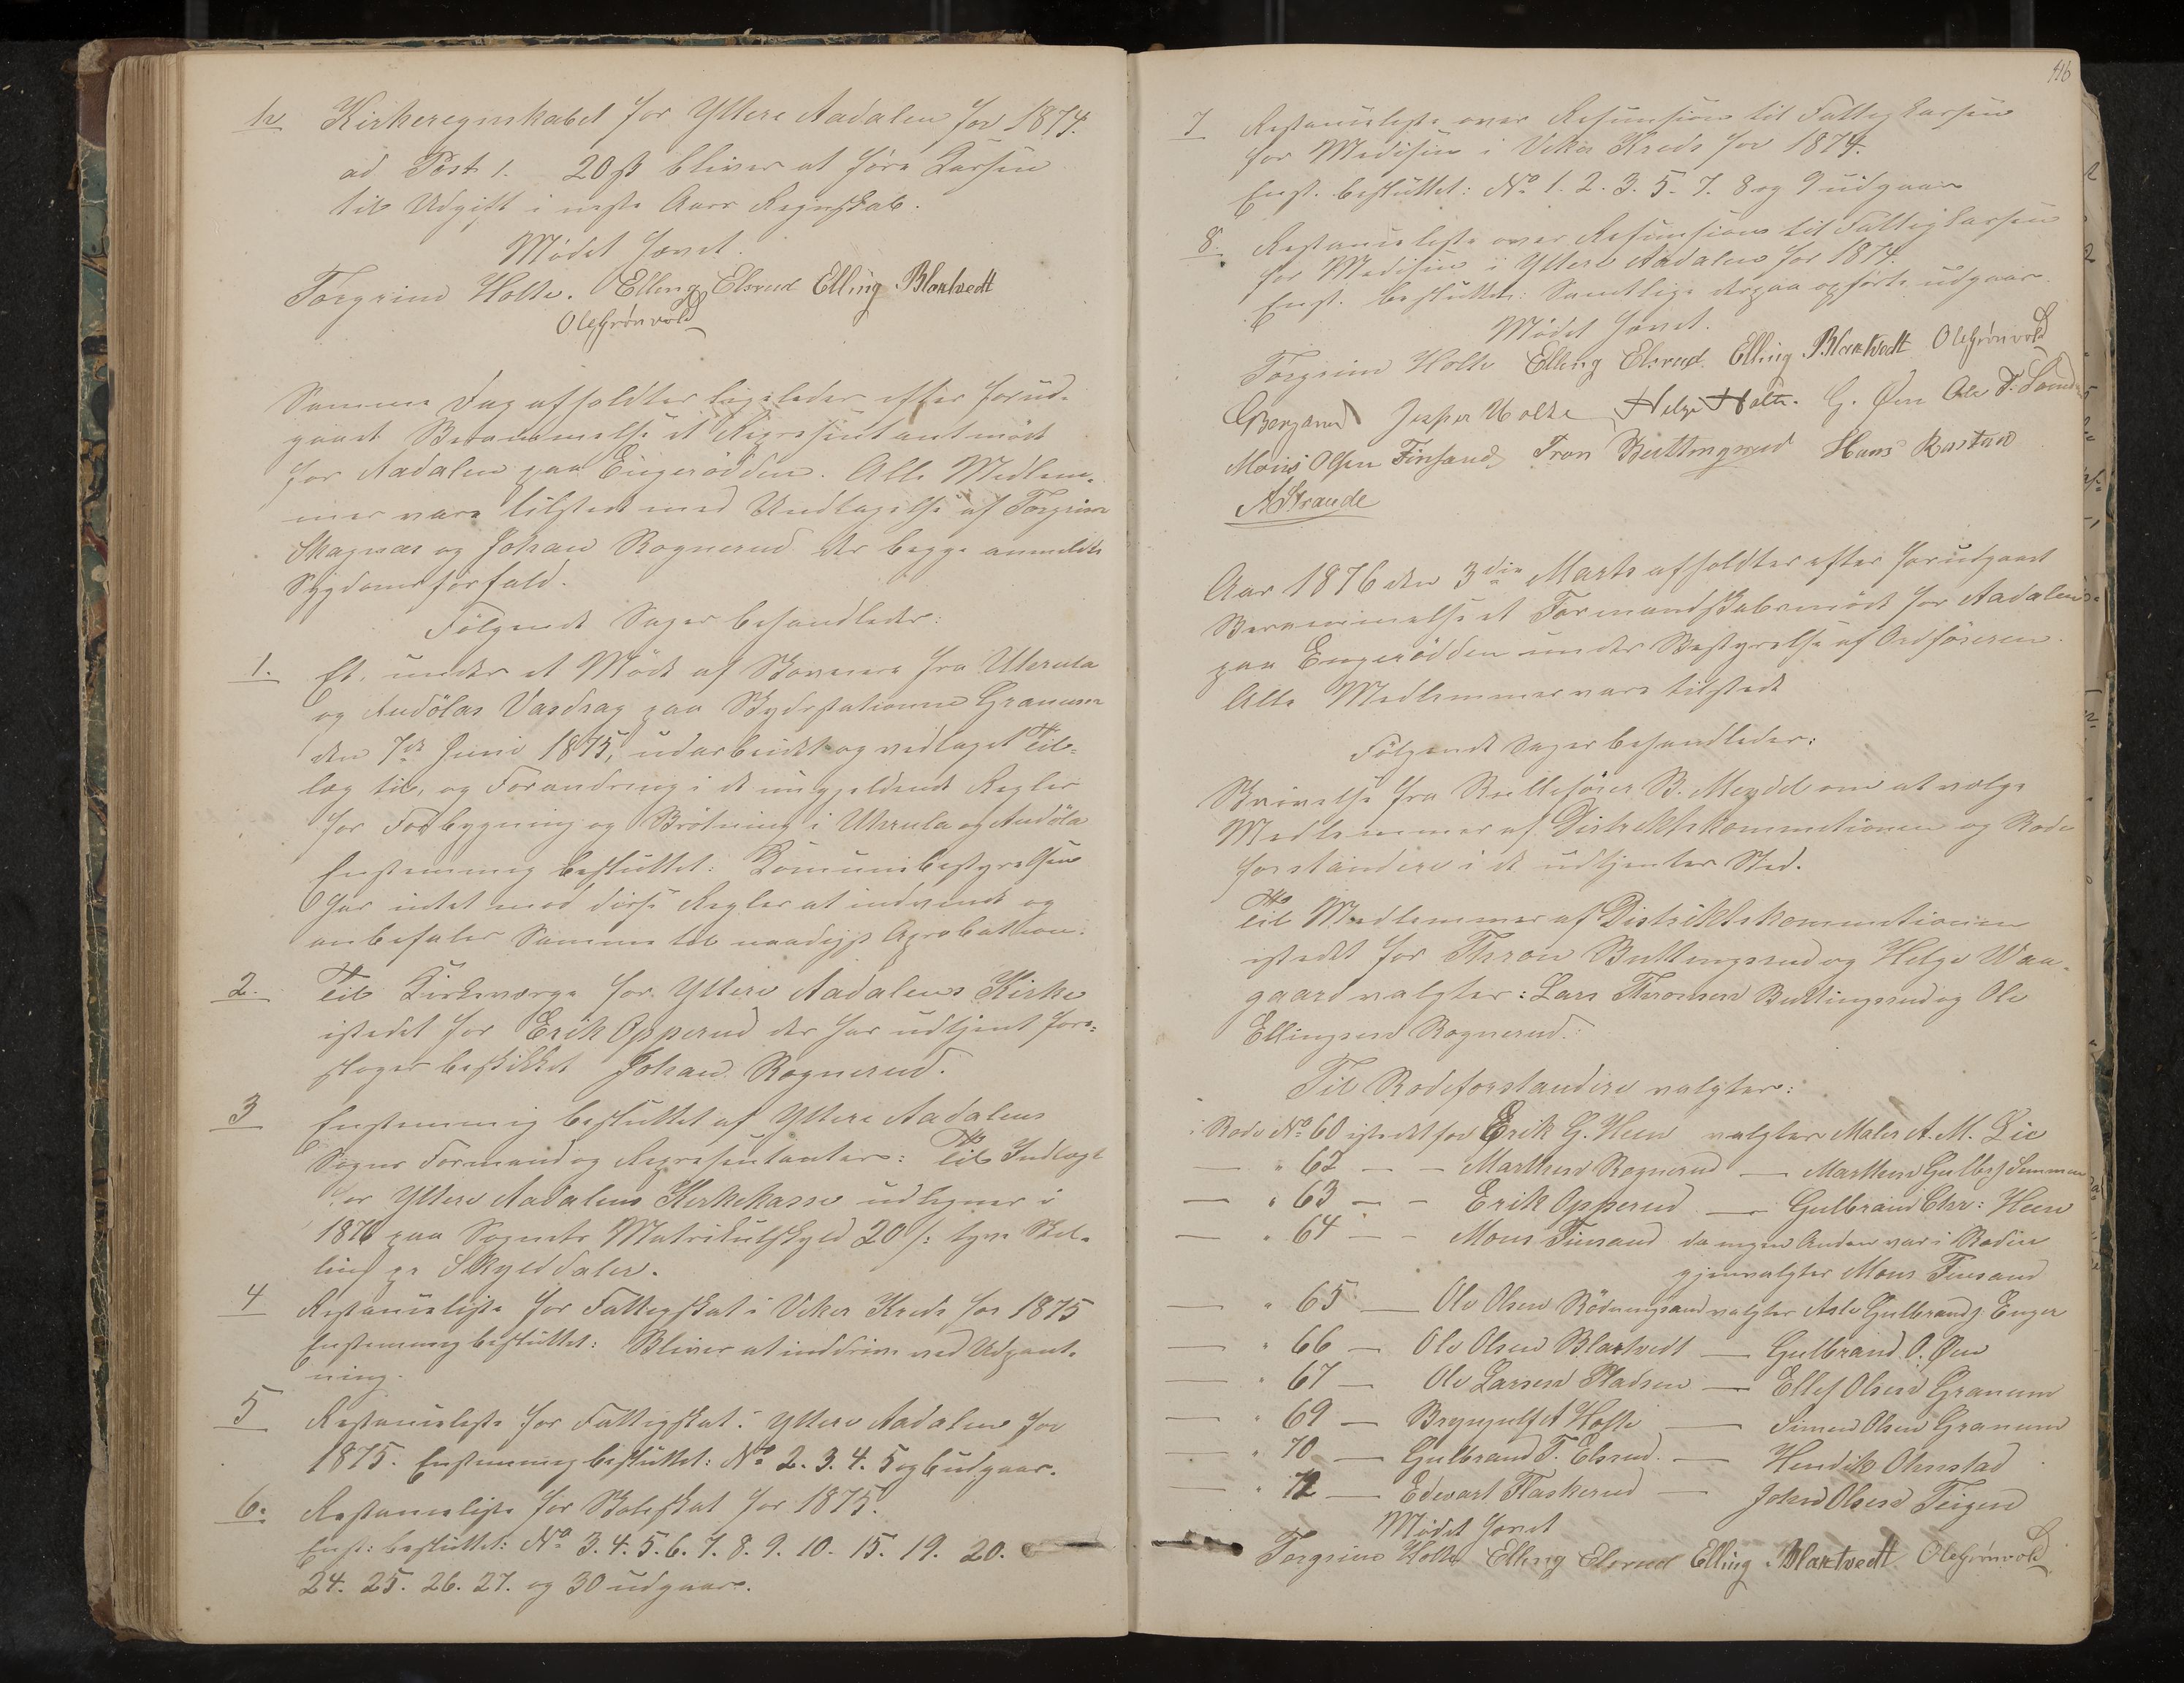 12 Kirkeregnskabet for Ytere Aadalen for 1874.
ad Post 1. 20 ß bliver at føre Kassen
til Udgift i neste Aars Regnskab.
Mødet hævet.
Torgrim Holte. Elling Elsrud Elling Blaktvedt
Ole Grønvold
Samme Dag afholdtes ligeledes efter forud-
gaaet Berammelse et Representantmøde
for Aadalen paa Engerodden. Alle Medlem-
mer vare tilstede med Undtagelse af Torgrim
Skagnæs og Johan Rognerud der begge anmeldte
Sygdomsforfald.
Følgende Sager behandledes:
1. Et, under et Møde af Skoveiere fra Uhrula
og Audølas Vasdrag paa Skydsstationen Granum
den 7de Juni 1875, udarbeidet og vedtaget Til-
læg til, og Forandring i de nugjeldende Regler
for Forbygning og Brötning i Uhrula og Audöla
Enstemmig besluttet: Komunebestyrelsen
har intet mod disse Regler at indvende og
anbefaler Samme til naadigst Aprobattion.
2. Til Kirkeværge for Ytere Aadalens Kirke
istedet for Erik Opperud der har udtjent fore-
slages beskikket Johan Rognerud.
3 Enstemmig besluttet af Ytere Aadalens
Sogns Formænd og Representanter: Til Indtægt
for Ytere Aadalens Kirkekasse udlignes i
1876 paa Sognets Matrikulskyld 20 ß: tyve Skil-
ling pr Skylddaler.
4 Restanseliste for Fattigskat i Veker Kreds for 1875
Enstemmig besluttet: Bliver at inddrive ved Udpant-
ning.
5 Restanseliste for Fattigskat i Ytere Aadalen for
1875. Enstemmig besluttet: No 2. 3. 4. 5 og 6 udgaar.
6. Restanseliste for Skoleskat for 1875.
Enst: besluttet: No 3. 4. 5. 6. 7. 8. 9. 10. 15. 19. 20.
24. 25. 26. 27. og 30 udgaar.
416
7 Restanseliste over Refunsion til Fattigkassen
for Medisin i Veker Kreds for 1874.
Enst. besluttet: No 1. 2. 3. 5. 7. 8 og 9 udgaar
8. Restanseliste over Refunsion til Fattigkassen
for Medisin i Ytere Aadalen for 1874.
Enst. besluttet: Samtlige derpaa opførte udgaar.
Mødet hævet.
Torgrim Holte Elling Elsrud. Elling Blaktvedt Ole Grønvold
Jesper Holte Helge Holte. G. Øen Ole T.
Mons Olsen Finsand Tron Buttingsrud Hans
A Strande
Aar 1876 den 3die Marts afholdtes efter forudgaaet
Berammelse et Formandskabsmøde for Aadalen
paa Engerodden under Bestyrelse af Ordføreren.
Alle Medlemmer vare tilstede
Følgende Sager behandledes:
Skrivelse fra Rulleförer B. Meydel om at vælge
Medlemmer af Distriktskommitionen og Rode
forstandere i de udtjentes Sted.
Til Medlemmer af Distriktskommitionen
istedet for Thron Buttingsrud og Helge Waa-
gaard valgtes: Lars Thronsen Buttingsrud og Ole
Ellingsen Rognerud.
Til Rodeforstandere valgtes:
i Rode No 60 istedet for Erik G. Heen valgtes Maler A. M. Lie
— " 62 — - Marthin Rognerud — Marthin Gulbrs Semmen
— " 63 — - Erik Opperud — Gulbrand Chr: Heen
— " 64 — - Mons Finsand da ingen Anden var i Roden
gjenvalgtes Mons Finsand
— " 65 — Ole Olsen Rödningsand valgtes Asle Gulbrands. Enger
— " 66 — Ole Olsen Blaktvedt — Gulbrand O. Øen
— " 67 — Ole Larsen Pladsen — Ellef Olsen Granum
— " 69 — Brynjulf A Hofte — Simen Olsen Granum
— " 70 — Gulbrand T. Elsrud. — Hendrik Olmstad
— " 72 — Edevart Flaskerud — John Olsen Teigen
Mødet hævet
Torgrim Holte Elling Elsrud Elling Blaktvedt Ole Grønvold